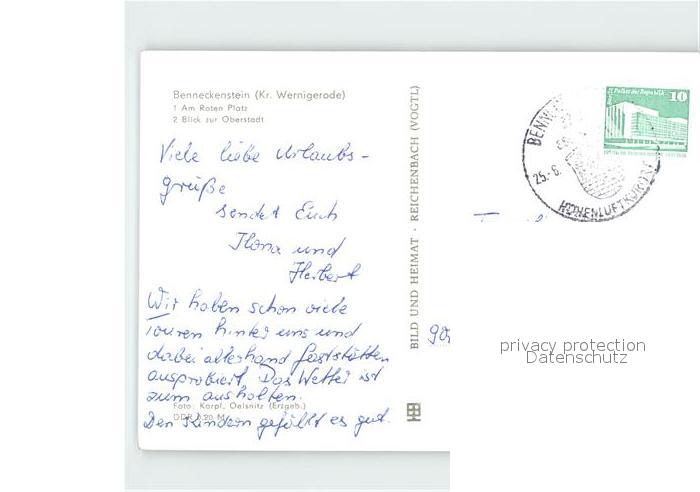 Benneckenstein (Kr. Wernigerode)
1 Am Roten Platz
2 Blick zur Oberstadt
Viele liebe Urlaubs-
grüße
sendet Euch
Ilona und
Herbert
Wir haben schon viele
Touren hinter uns und
dabei allerhand Gaststätten
ausprobiert. Das Wetter ist
zum aushalten.
Foto: Karpf, Oelsnitz (Erzgeb.)
Den Kindern gefällt es gut.
DDR 0,20 M
BILD UND HEIMAT · REICHENBACH (VOGTL)
Palast der Republik
10
25.-6.
HÖHENLUFTKURORT
privacy protection
Datenschutz